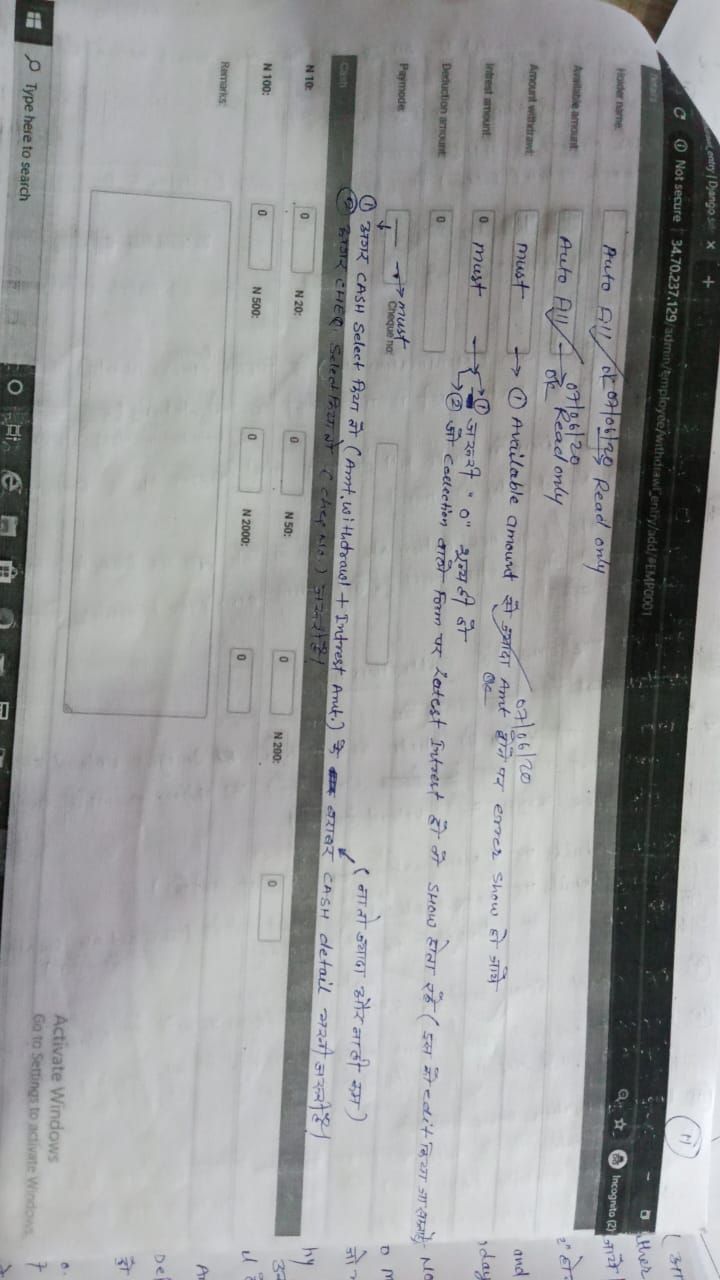 _entry | Django s
× +
Not secure | 34.70.237.129/admin/Employee/withdrawl_entry/add/#EMP0001
Incognito (2)
11
Holder name:
Auto All ok 07/06/20 Read only
Available amount:
Auto All → Read only
ok 07/06/20
Amount withdrawl:
must → ① Available amount से ज्यादा Amt होने पर error show हो जाये
ok 07/06/20
Intrest amount:
0 must → ① जरूरी "0" शून्य ही हो
② जो collection वाले Form पर Latest Intrest हो वो SHOW होता रहे ( इस को edit किया जा सके)
Deduction amount:
0
Paymode:
→ must
Cheque no:
( ना तो ज्यादा और ना ही कम )
① अगर CASH Select किया तो (Amt. withdrawl + Intrest Amt.) के बराबर CASH detail भरनी जरूरी है।
Cash
② अगर CHEQ. Select किया तो ( Cheq No. ) जरूरी है।
N 10: 0 N 20: 0 N 50: 0 N 200: 0
N 100: 0 N 500: 0 N 2000: 0
Remarks:
Activate Windows
Go to Settings to activate Windows.
Type here to search
and
day